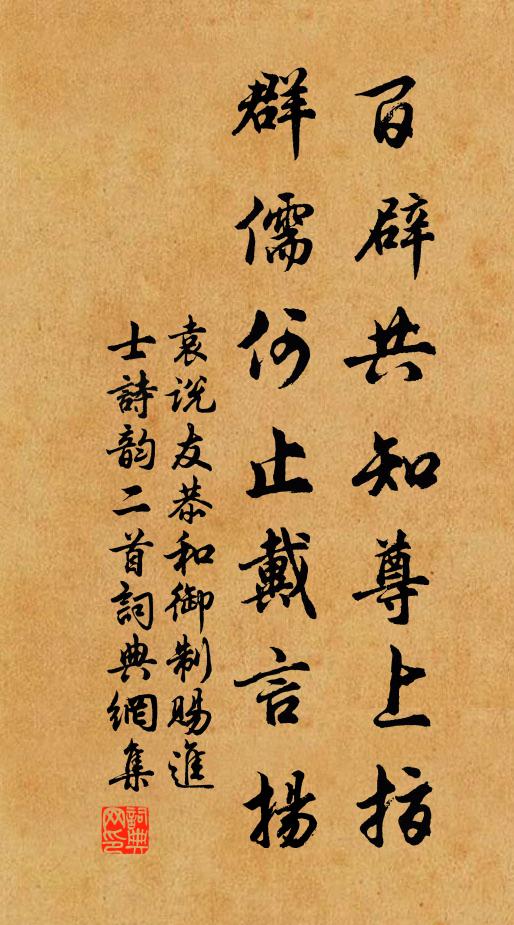 百辟共知尊上指
群儒何止戴言揚
袁説友恭和御制賜進
士詩韵二首詞典網集
詞典网印